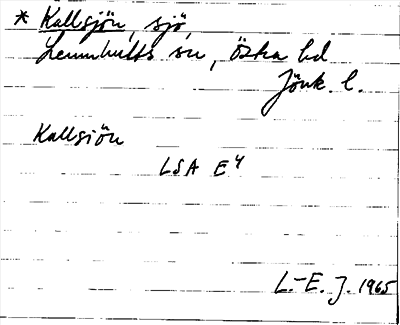 * Kallsjön, sjö,
Lemnhults sn, Östra hd
Jönk. l.
Kallsiön
LSA E4
L.-E. J. 1965